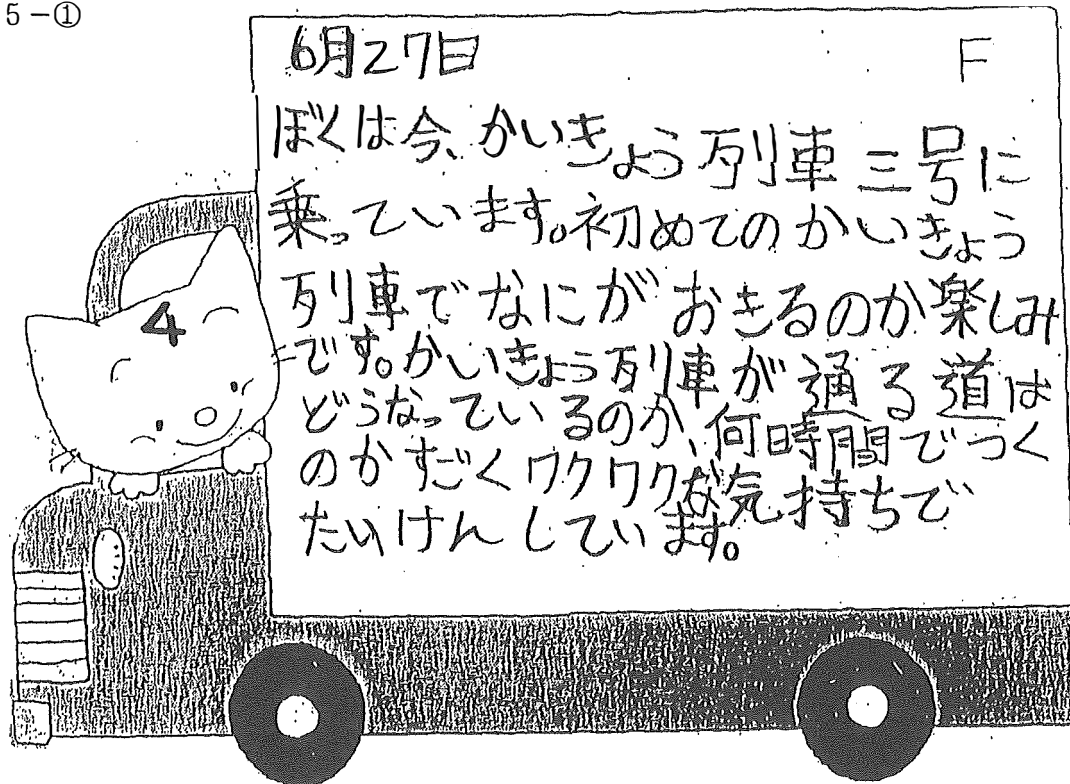 5-①
6月27日 F
ぼくは今、かいきょう列車三号に
乗っています。初めてのかいきょう
列車でなにがおきるのか楽しみ
です。かいきょう列車が通る道は
どうなっているのか、何時間でつく
のかすごくワクワクな気持ちで
たいけんしています。
4